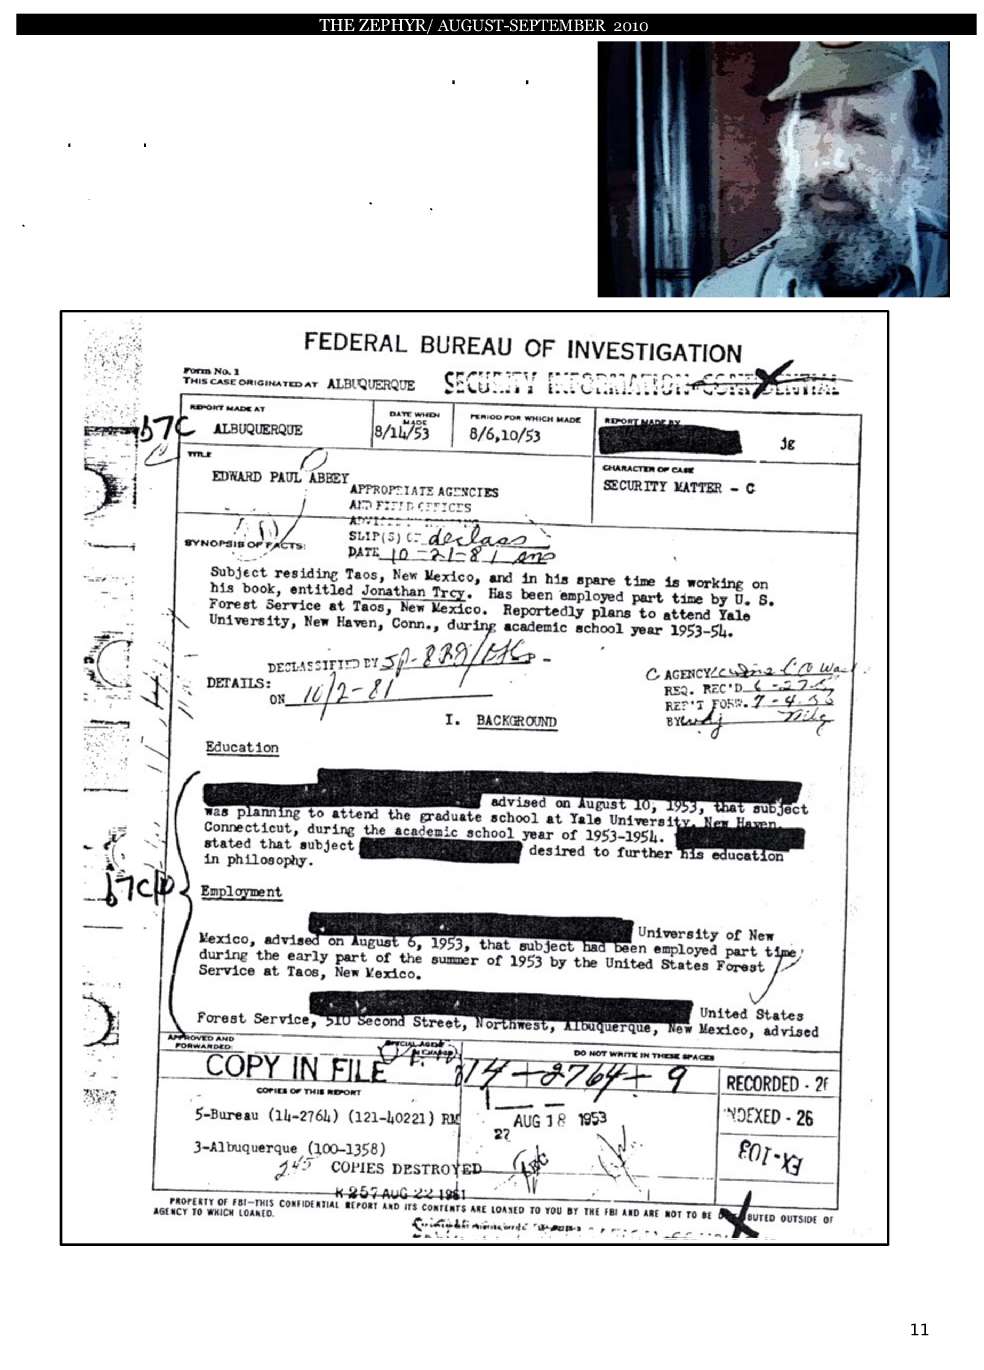 THE ZEPHYR/ AUGUST-SEPTEMBER 2010
FEDERAL BUREAU OF INVESTIGATION
Form No. 1
THIS CASE ORIGINATED AT ALBUQUERQUE
SECURITY INFORMATION - CONFIDENTIAL
b7C
REPORT MADE AT
ALBUQUERQUE
DATE WHEN MADE
8/14/53
PERIOD FOR WHICH MADE
8/6,10/53
REPORT MADE BY
jg
TITLE
EDWARD PAUL ABBEY
CHARACTER OF CASE
SECURITY MATTER - C
APPROPRIATE AGENCIES
AND FIELD OFFICES
SLIP(S) OF declass
DATE 10-21-81
SYNOPSIS OF FACTS:
Subject residing Taos, New Mexico, and in his spare time is working on
his book, entitled Jonathan Trcy. Has been employed part time by U. S.
Forest Service at Taos, New Mexico. Reportedly plans to attend Yale
University, New Haven, Conn., during academic school year 1953-54.
DECLASSIFIED BY
ON 10/2-81
DETAILS:
AGENCY
REQ. REC'D
REP'T FORW.
BY
I. BACKGROUND
Education
advised on August 10, 1953, that subject
was planning to attend the graduate school at Yale University, New Haven,
Connecticut, during the academic school year of 1953-1954.
stated that subject desired to further his education
in philosophy.
b7C
Employment
University of New
Mexico, advised on August 6, 1953, that subject had been employed part time
during the early part of the summer of 1953 by the United States Forest
Service at Taos, New Mexico.
United States
Forest Service, 510 Second Street, Northwest, Albuquerque, New Mexico, advised
APPROVED AND
FORWARDED:
SPECIAL AGENT
IN CHARGE
DO NOT WRITE IN THESE SPACES
COPY IN FILE
14-2764-9
RECORDED - 2
COPIES OF THIS REPORT
5-Bureau (14-2764) (121-40221) RM
AUG 18 1953
27
INDEXED - 26
3-Albuquerque (100-1358)
EX-103
245 COPIES DESTROYED
R 257 AUG 22 1961
PROPERTY OF FBI—THIS CONFIDENTIAL REPORT AND ITS CONTENTS ARE LOANED TO YOU BY THE FBI AND ARE NOT TO BE DISTRIBUTED OUTSIDE OF
AGENCY TO WHICH LOANED.
11